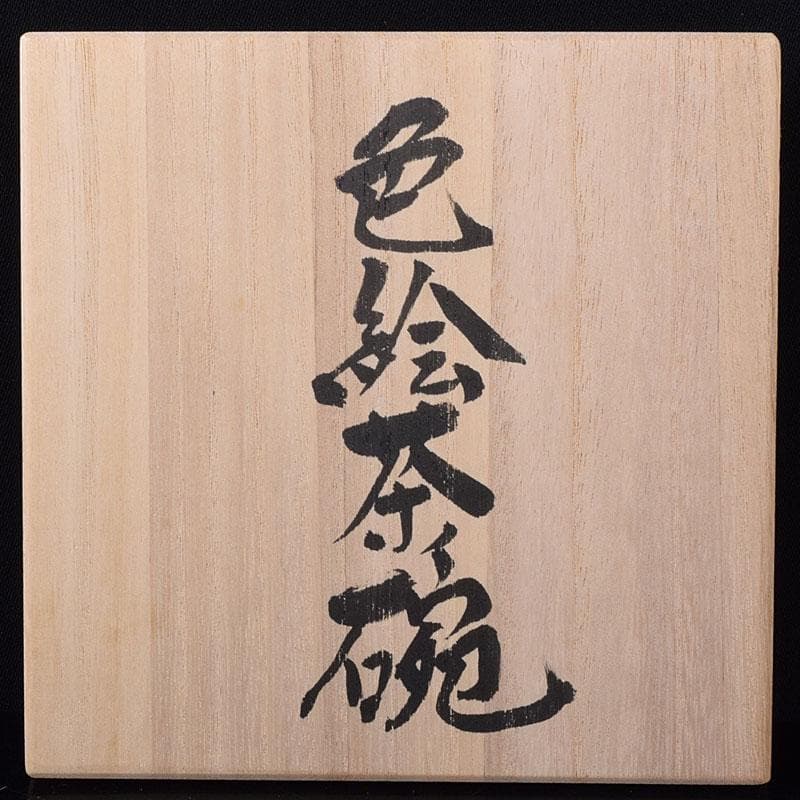 色絵茶碗